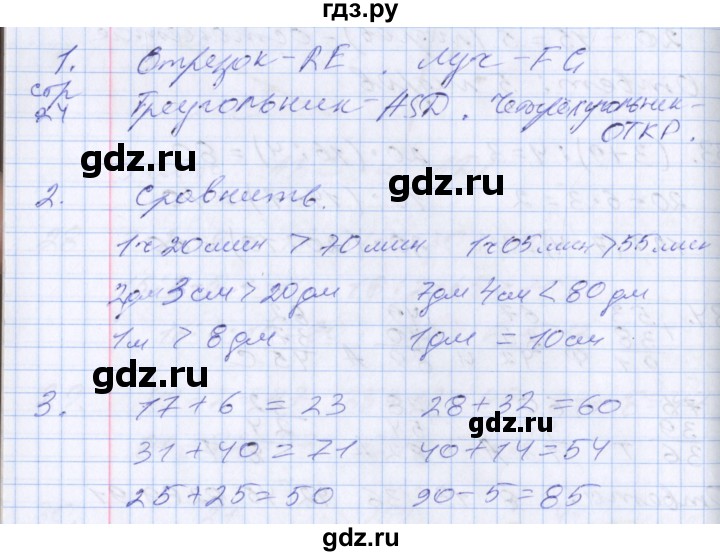 гдз.ру
1. Отрезок - RE. Луч - FG
стр 24 Треугольник - ASD. Четырехугольник -
ОТКР.
gdz.ru gdz.ru
2. Сравнить.
1ч 20мин > 70мин 1ч 05мин > 55мин
2дм 3см > 20дм 7дм 4см < 80дм
1м > 8дм 1дм = 10см
gdz.ru gdz.ru
3. 17 + 6 = 23 28 + 32 = 60
31 + 40 = 71 40 + 14 = 54
25 + 25 = 50 90 - 5 = 85
gdz.ru gdz.ru